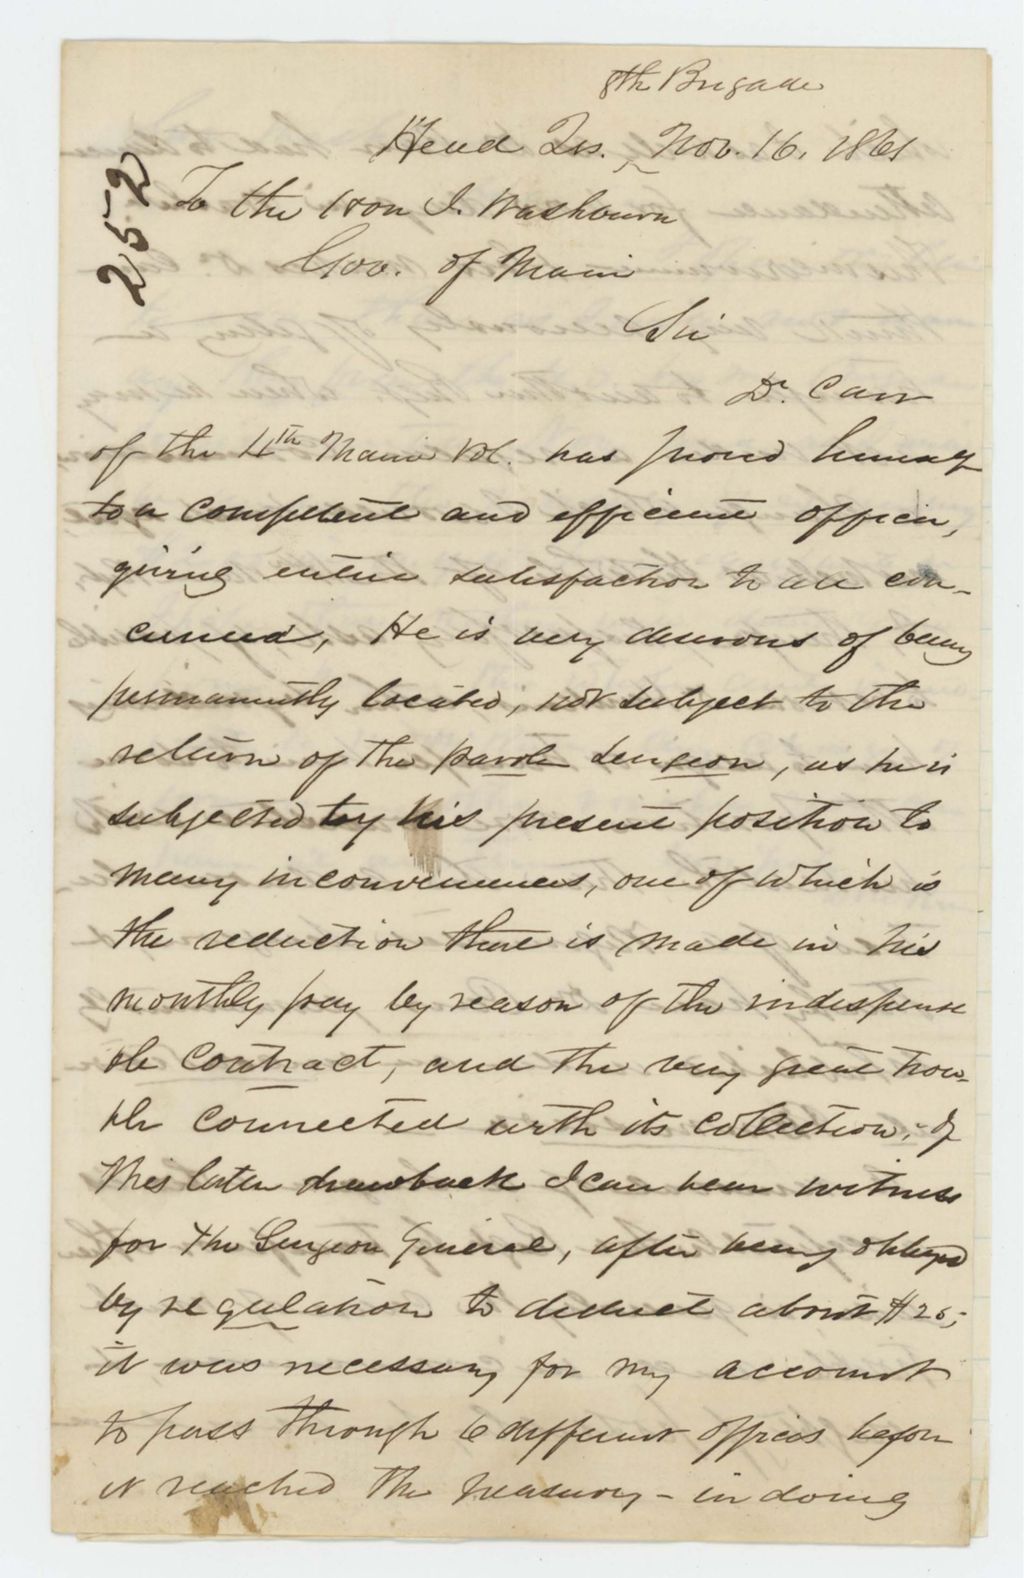 8th Brigade
Head Qrs. Nov. 16, 1861
252
To the Hon I. Washburn
Gov. of Maine
Sir
Dr. Carr
of the 4th Maine Vol. has proved himself
to a competent and efficient officer,
giving entire satisfaction to all con-
cerned, He is very desirous of being
permanently located, not subject to the
return of the parole surgeon, as he is
subjected by his present position to
many inconveniences, one of which is
the reduction there is made in his
monthly pay by reason of the indispensa
ble contract, and the very great trou-
ble connected with its collection; of
this latter drawback I can bear witness
for the Surgeon General, after being obliged
by regulation to deduct about $20;
it was necessary for my account
to pass through 6 different offices before
it reached the treasury - in doing